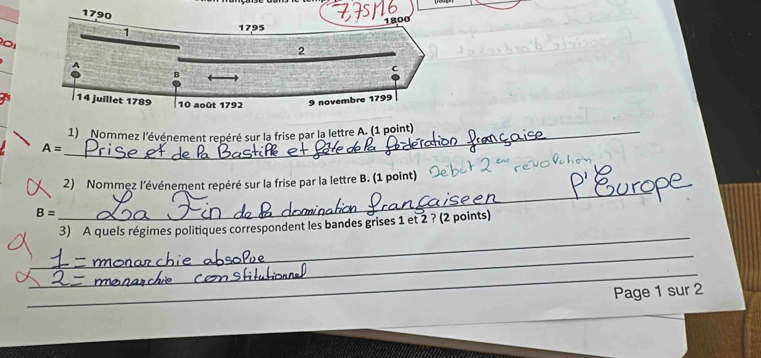 7,75/16
1790
1795
1800
1
2
A
B
C
14 juillet 1789
10 août 1792
9 novembre 1799
1) Nommez l'événement repéré sur la frise par la lettre A. (1 point)
A = Prise et de la Bastille et fête de la fédération française
2) Nommez l'événement repéré sur la frise par la lettre B. (1 point) Debut 2em revolution
B = La Fin de la domination française en l'Europe
3) A quels régimes politiques correspondent les bandes grises 1 et 2 ? (2 points)
1 = monarchie absolue
2 = monarchie constitutionnel
Page 1 sur 2